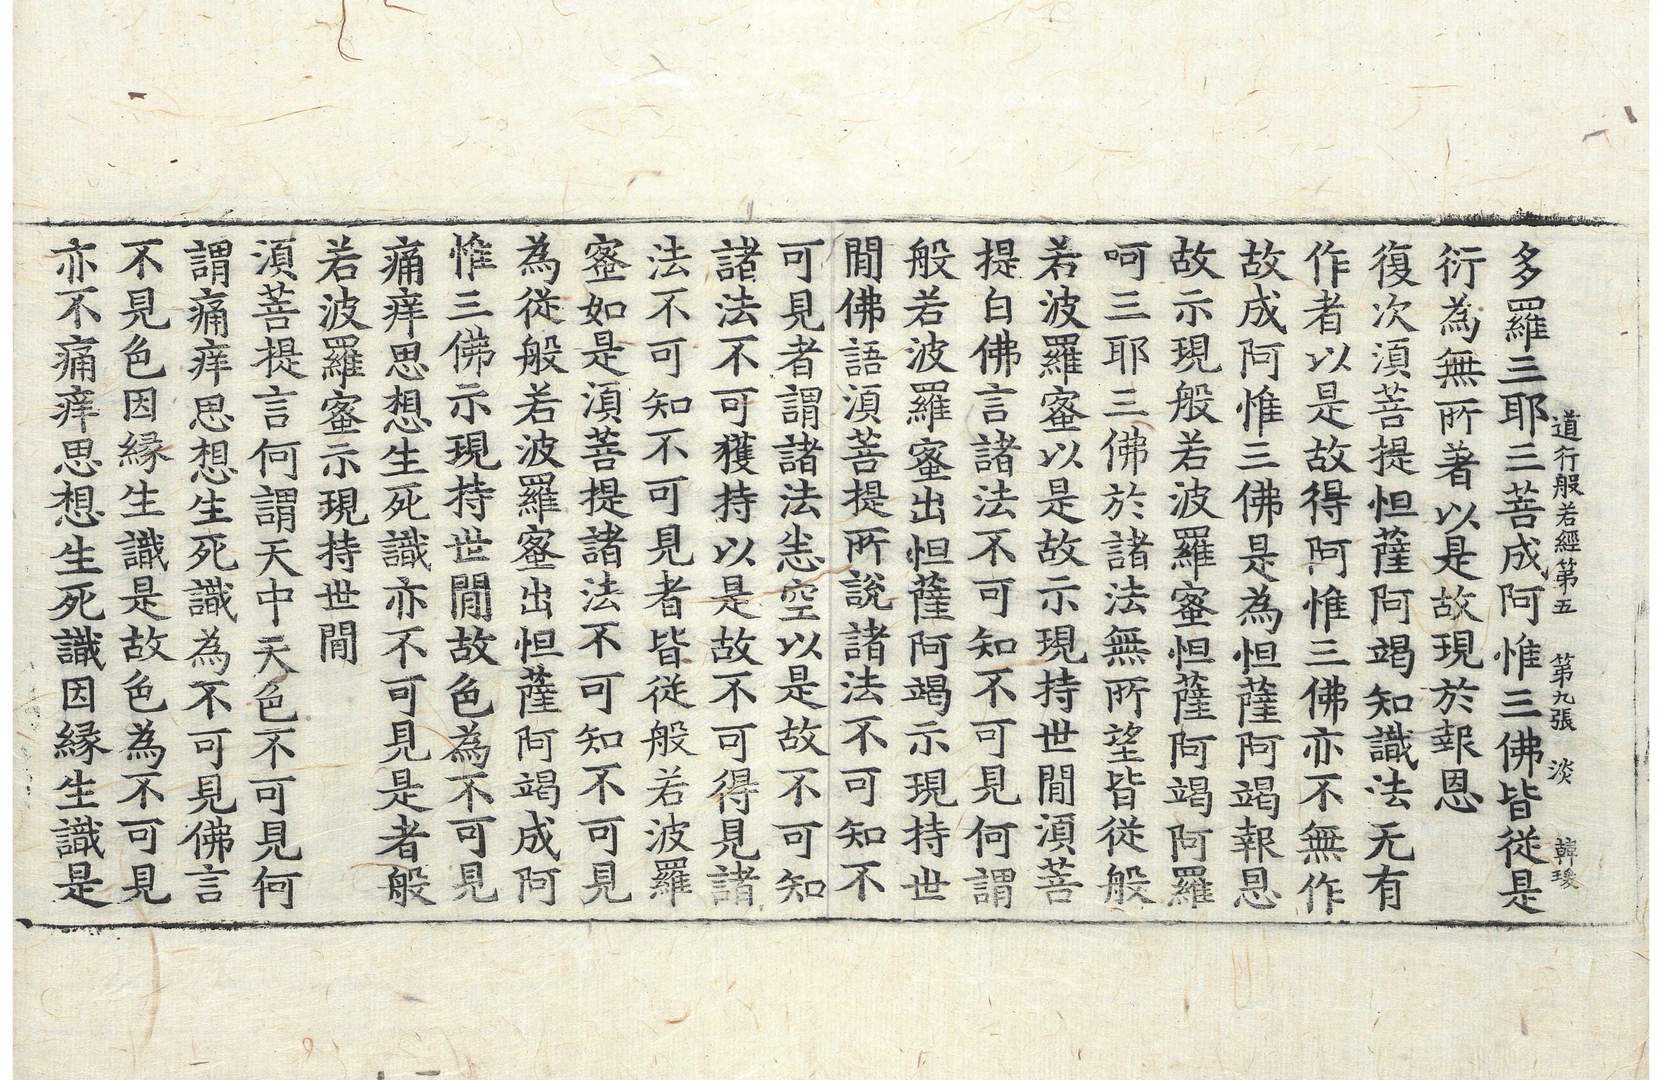 道行般若經第五 第九張 淡 韓
多羅三耶三菩成阿惟三佛皆從是
衍為無所著以是故現於報恩
復次湏菩提怛薩阿竭知識法无有
作者以是故得阿惟三佛亦不無作
故成阿惟三佛是為怛薩阿竭報恩
故示現般若波羅蜜怛薩阿竭阿羅
呵三耶三佛於諸法無所望皆從般
若波羅蜜以是故示現持世間湏菩
提白佛言諸法不可知不可見何謂
般若波羅蜜出怛薩阿竭示現持世
間佛語湏菩提所說諸法不可知不
可見者謂諸法悉空以是故不可知
諸法不可獲持以是故不可得見諸
法不可知不可見者皆從般若波羅
蜜如是湏菩提諸法不可知不可見
為從般若波羅蜜出怛薩阿竭成阿
惟三佛示現持世間故色為不可見
痛痒思想生死識亦不可見是者般
若波羅蜜示現持世間
湏菩提言何謂天中天色不可見何
謂痛痒思想生死識為不可見佛言
不見色因緣生識是故色為不可見
亦不痛痒思想生死識因緣生識是